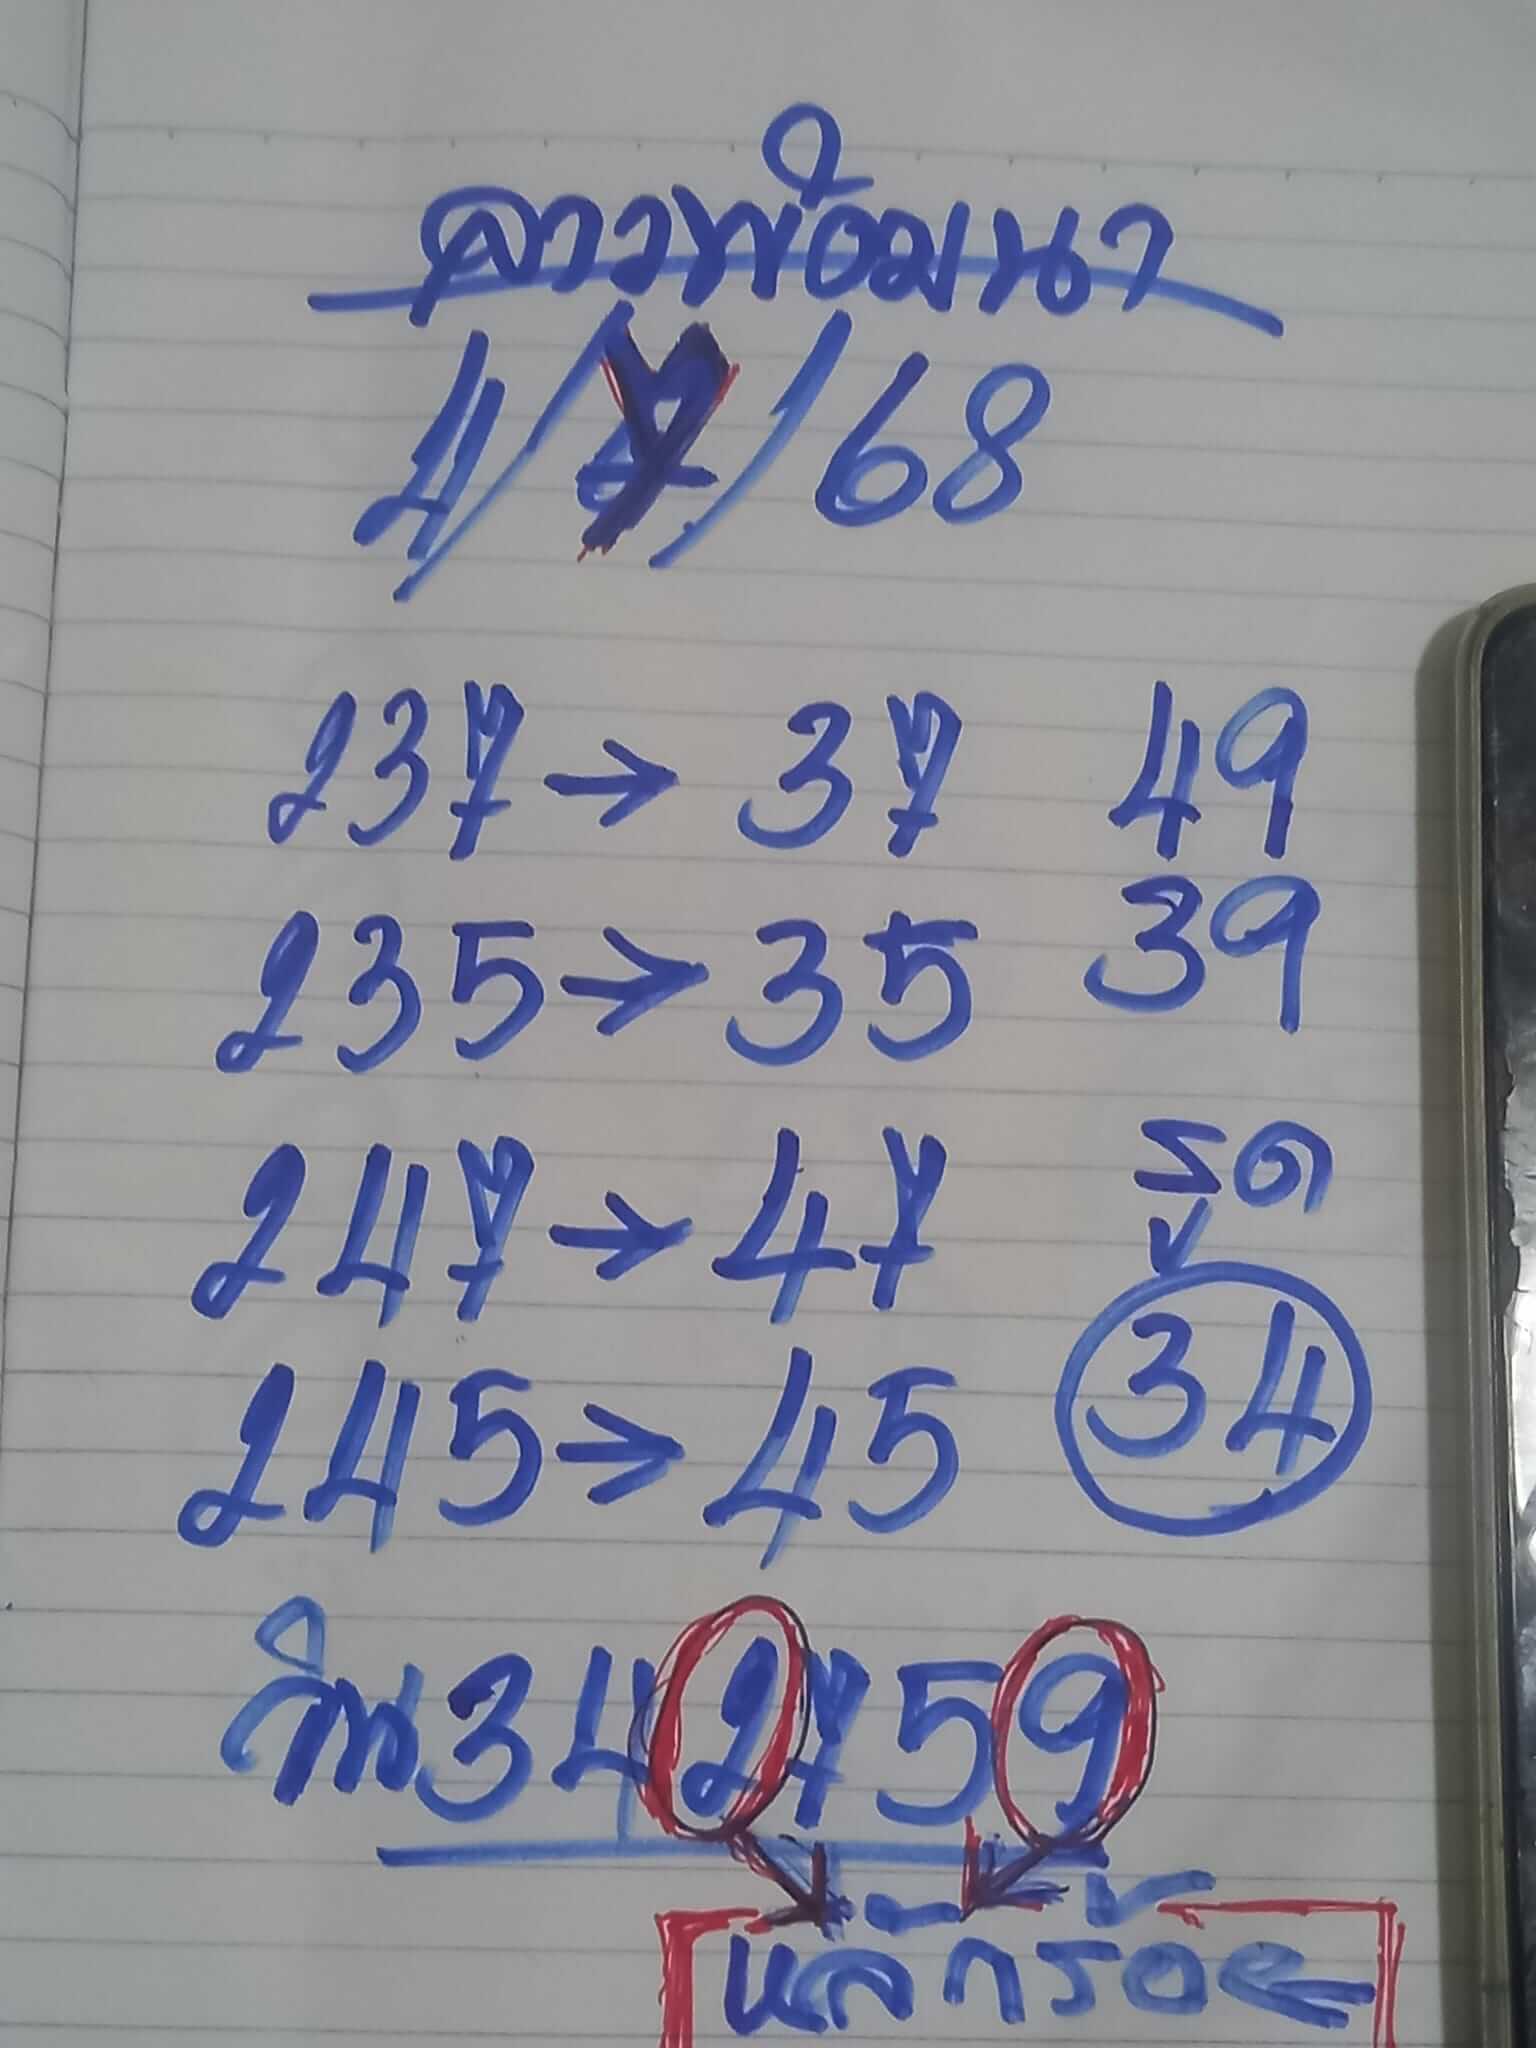 ลาวพัฒนา
4/7/68
237→37 49
235→35 39
247→47
รูด
34
245→45
วิน342759
หลักร้อย